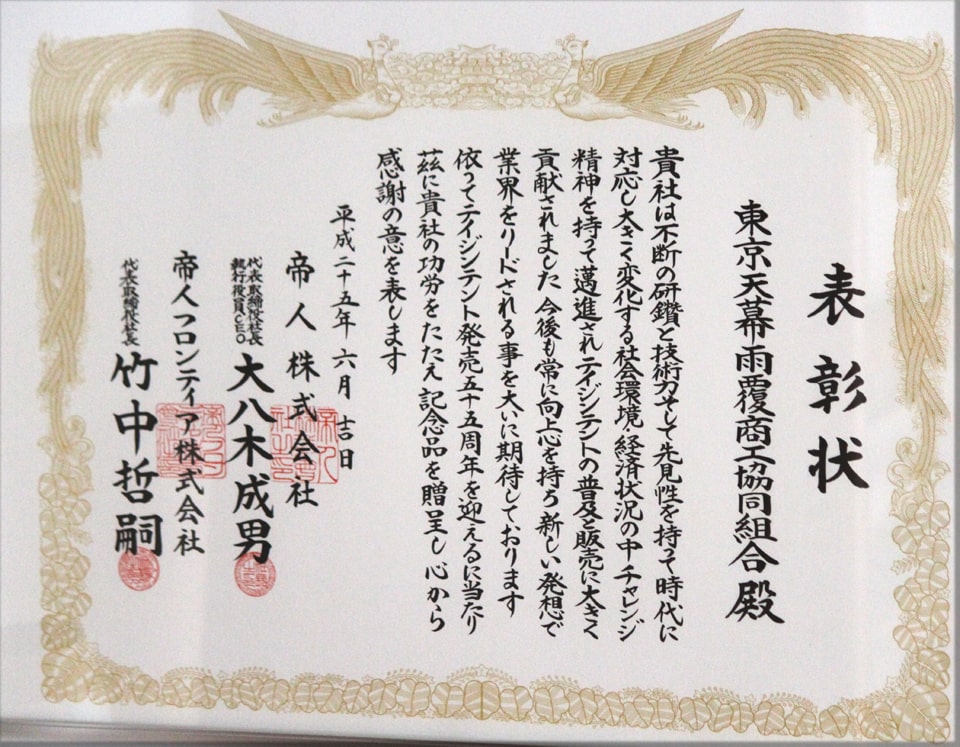 表彰状
東京天幕雨覆商工協同組合殿
貴社は不断の研鑽と技術力そして先見性を持って時代に
対応し大きく変化する社会環境 経済状況の中 チャレンジ
精神を持って邁進されテイジンテントの普及と販売に大きく
貢献されました 今後も常に向上心を持ち新しい発想で
業界をリードされる事を大いに期待しております
依ってテイジンテント発売五十五周年を迎えるに当たり
茲に貴社の功労をたたえ 記念品を贈呈し心から
感謝の意を表します
平成二十五年 六月 吉日
帝人株式会社
代表取締役社長
執行役員CEO
大八木成男
帝人フロンティア株式会社
代表取締役社長
竹中哲嗣